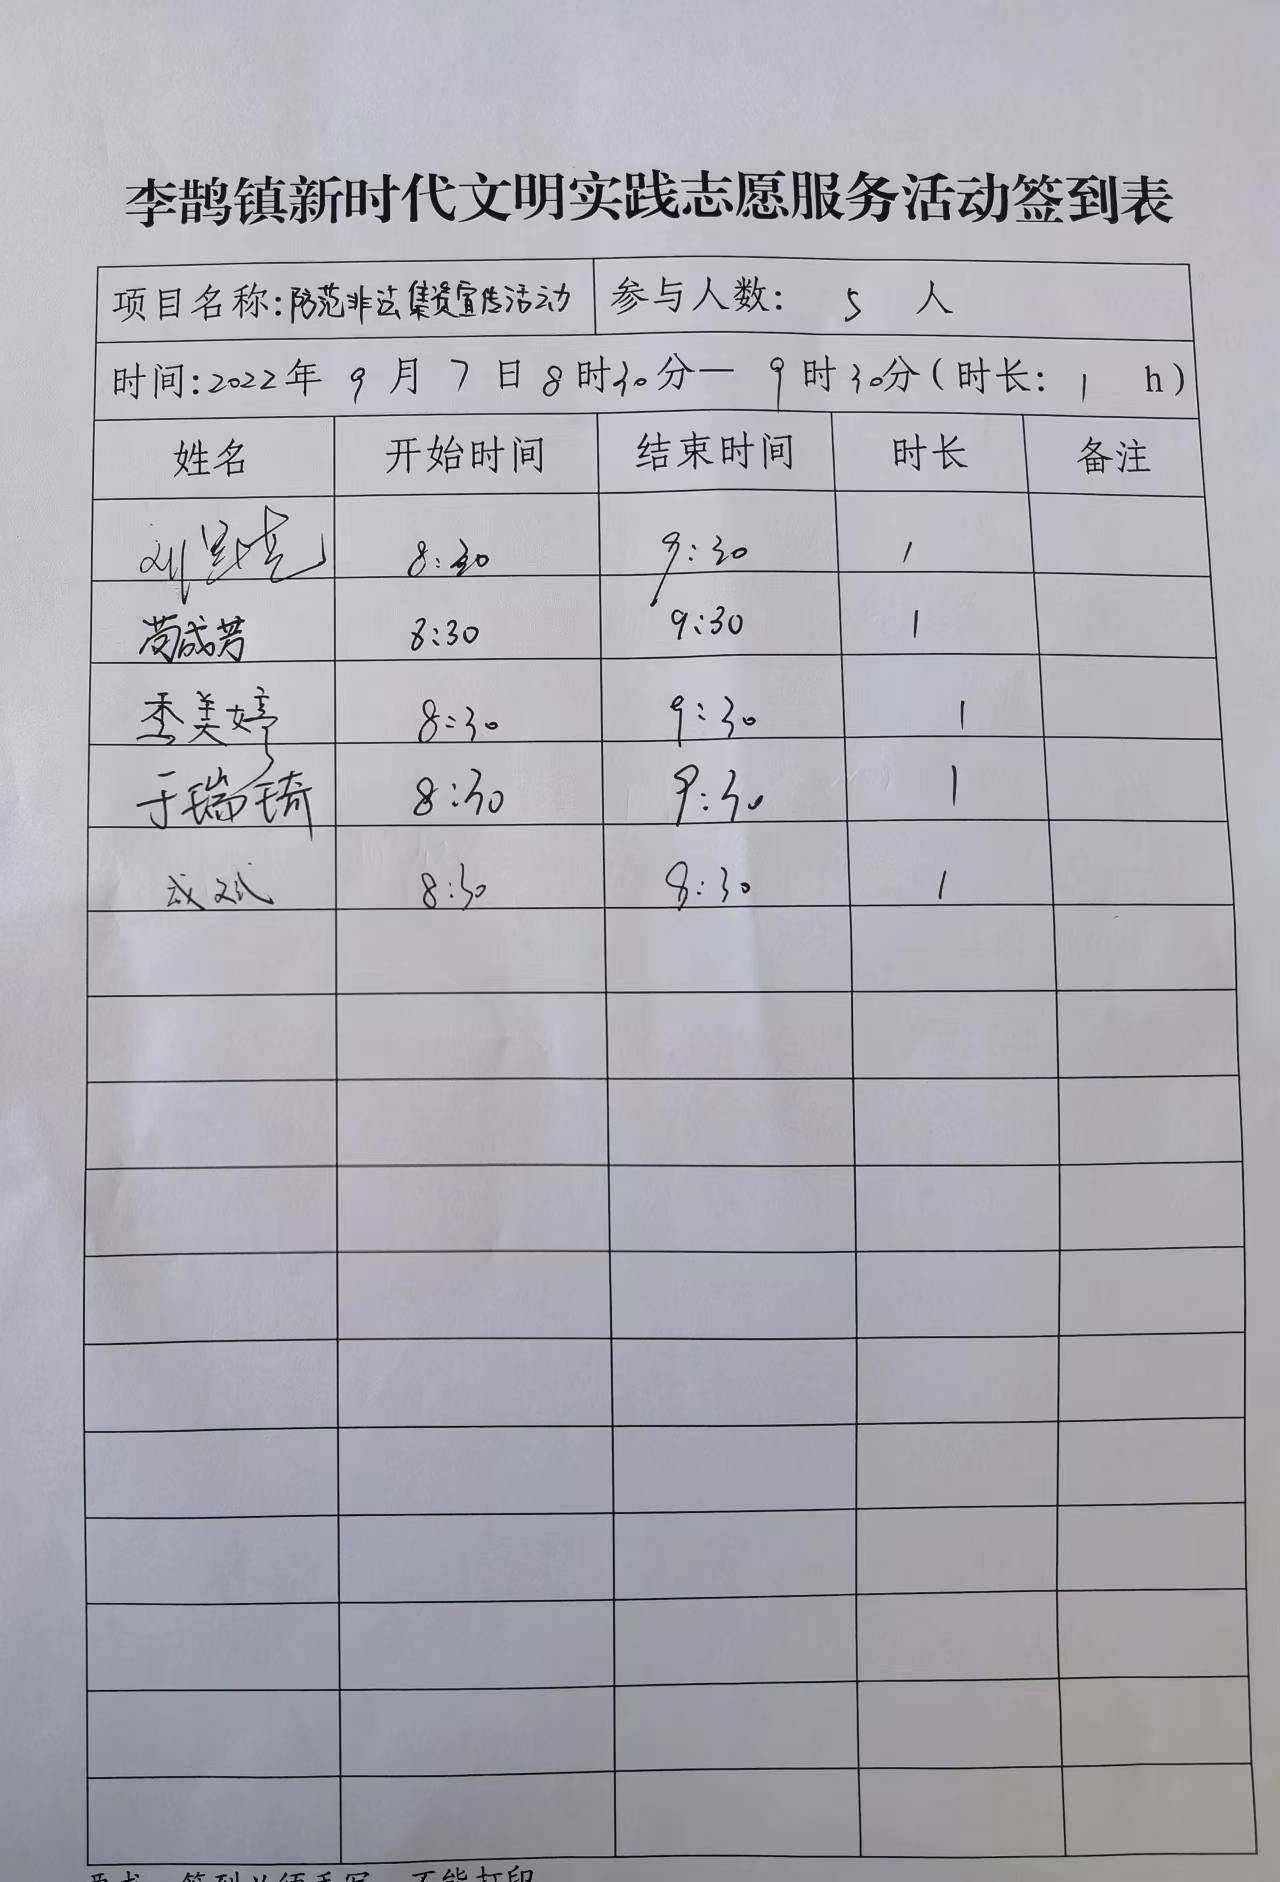 李鹊镇新时代文明实践志愿服务活动签到表
项目名称:防范非法集资宣传活动 参与人数: 5 人
时间:2022年 9 月 7 日 8时30分— 9时30分(时长: 1 h)
姓名 开始时间 结束时间 时长 备注
刘 8:30 9:30 1
苟成芳 8:30 9:30 1
李美婷 8:30 9:30 1
于瑞琦 8:30 9:30 1
成文武 8:30 8:30 1
要求:签到必须手写,不能打印